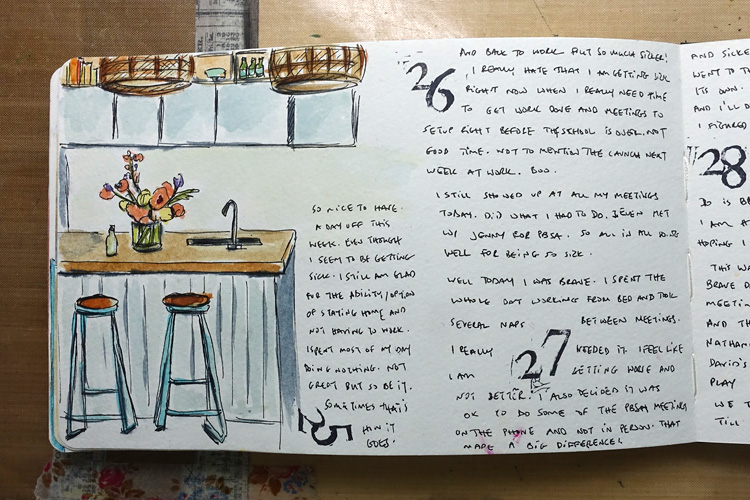 SO NICE TO HAVE
A DAY OFF THIS
WEEK. EVEN THOUGH
I SEEM TO BE GETTING
SICK. I STILL AM GLAD
FOR THE ABILITY/OPTION
OF STAYING HOME AND
NOT HAVING TO WORK.
I SPENT MOST OF MY DAY
DOING NOTHING. NOT
GREAT BUT SO BE IT.
SOMETIMES THAT'S
25 HOW IT
GOES!
26 AND BACK TO WORK BUT SO MUCH SICKER!
I REALLY HATE THAT I AM GETTING SICK
RIGHT NOW WHEN I REALLY NEED TIME
TO GET WORK DONE AND MEETINGS TO
SETUP RIGHT BEFORE THE SCHOOL IS OVER. NOT
GOOD TIME. NOT TO MENTION THE LAUNCH NEXT
WEEK AT WORK. BOO.
I STILL SHOWED UP AT ALL MY MEETINGS
TODAY. DID WHAT I HAD TO DO. I EVEN MET
W/ JENNY FOR PBSA. SO ALL IN ALL
WELL FOR BEING SO SICK.
WELL TODAY I WAS BRAVE. I SPENT THE
WHOLE DAY WORKING FROM BED AND TOOK
SEVERAL NAPS BETWEEN MEETINGS.
I REALLY 27 NEEDED IT. I FEEL LIKE
I AM GETTING WORSE AND
NOT BETTER. I ALSO DECIDED IT WAS
OK TO DO SOME OF THE PBSA MEETING
ON THE PHONE AND NOT IN PERSON. THAT
MADE A BIG DIFFERENCE!
AND SICKE
WENT TO T
ITS OWN.
AND I'LL D
I FIGURED
28
DO IS BR
I AM A
HOPING I
THIS WA
BRAVE D
MEETIN
AND TH
NATHAN
DAVID'S
PLAY
WE T
TILL